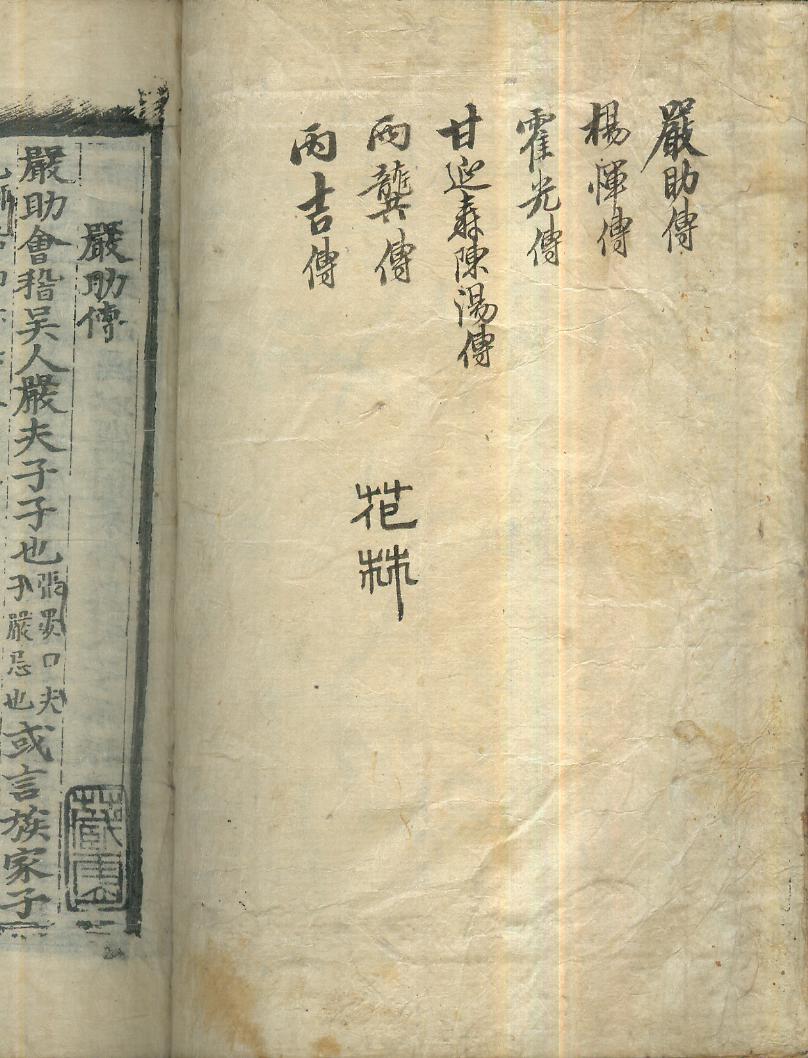 嚴助傳
楊惲傳
霍光傳
甘延壽陳湯傳
兩龔傳
丙吉傳
花林
嚴助傳
嚴助會稽吳人嚴夫子子也張晏曰夫子嚴忌也或言族家子